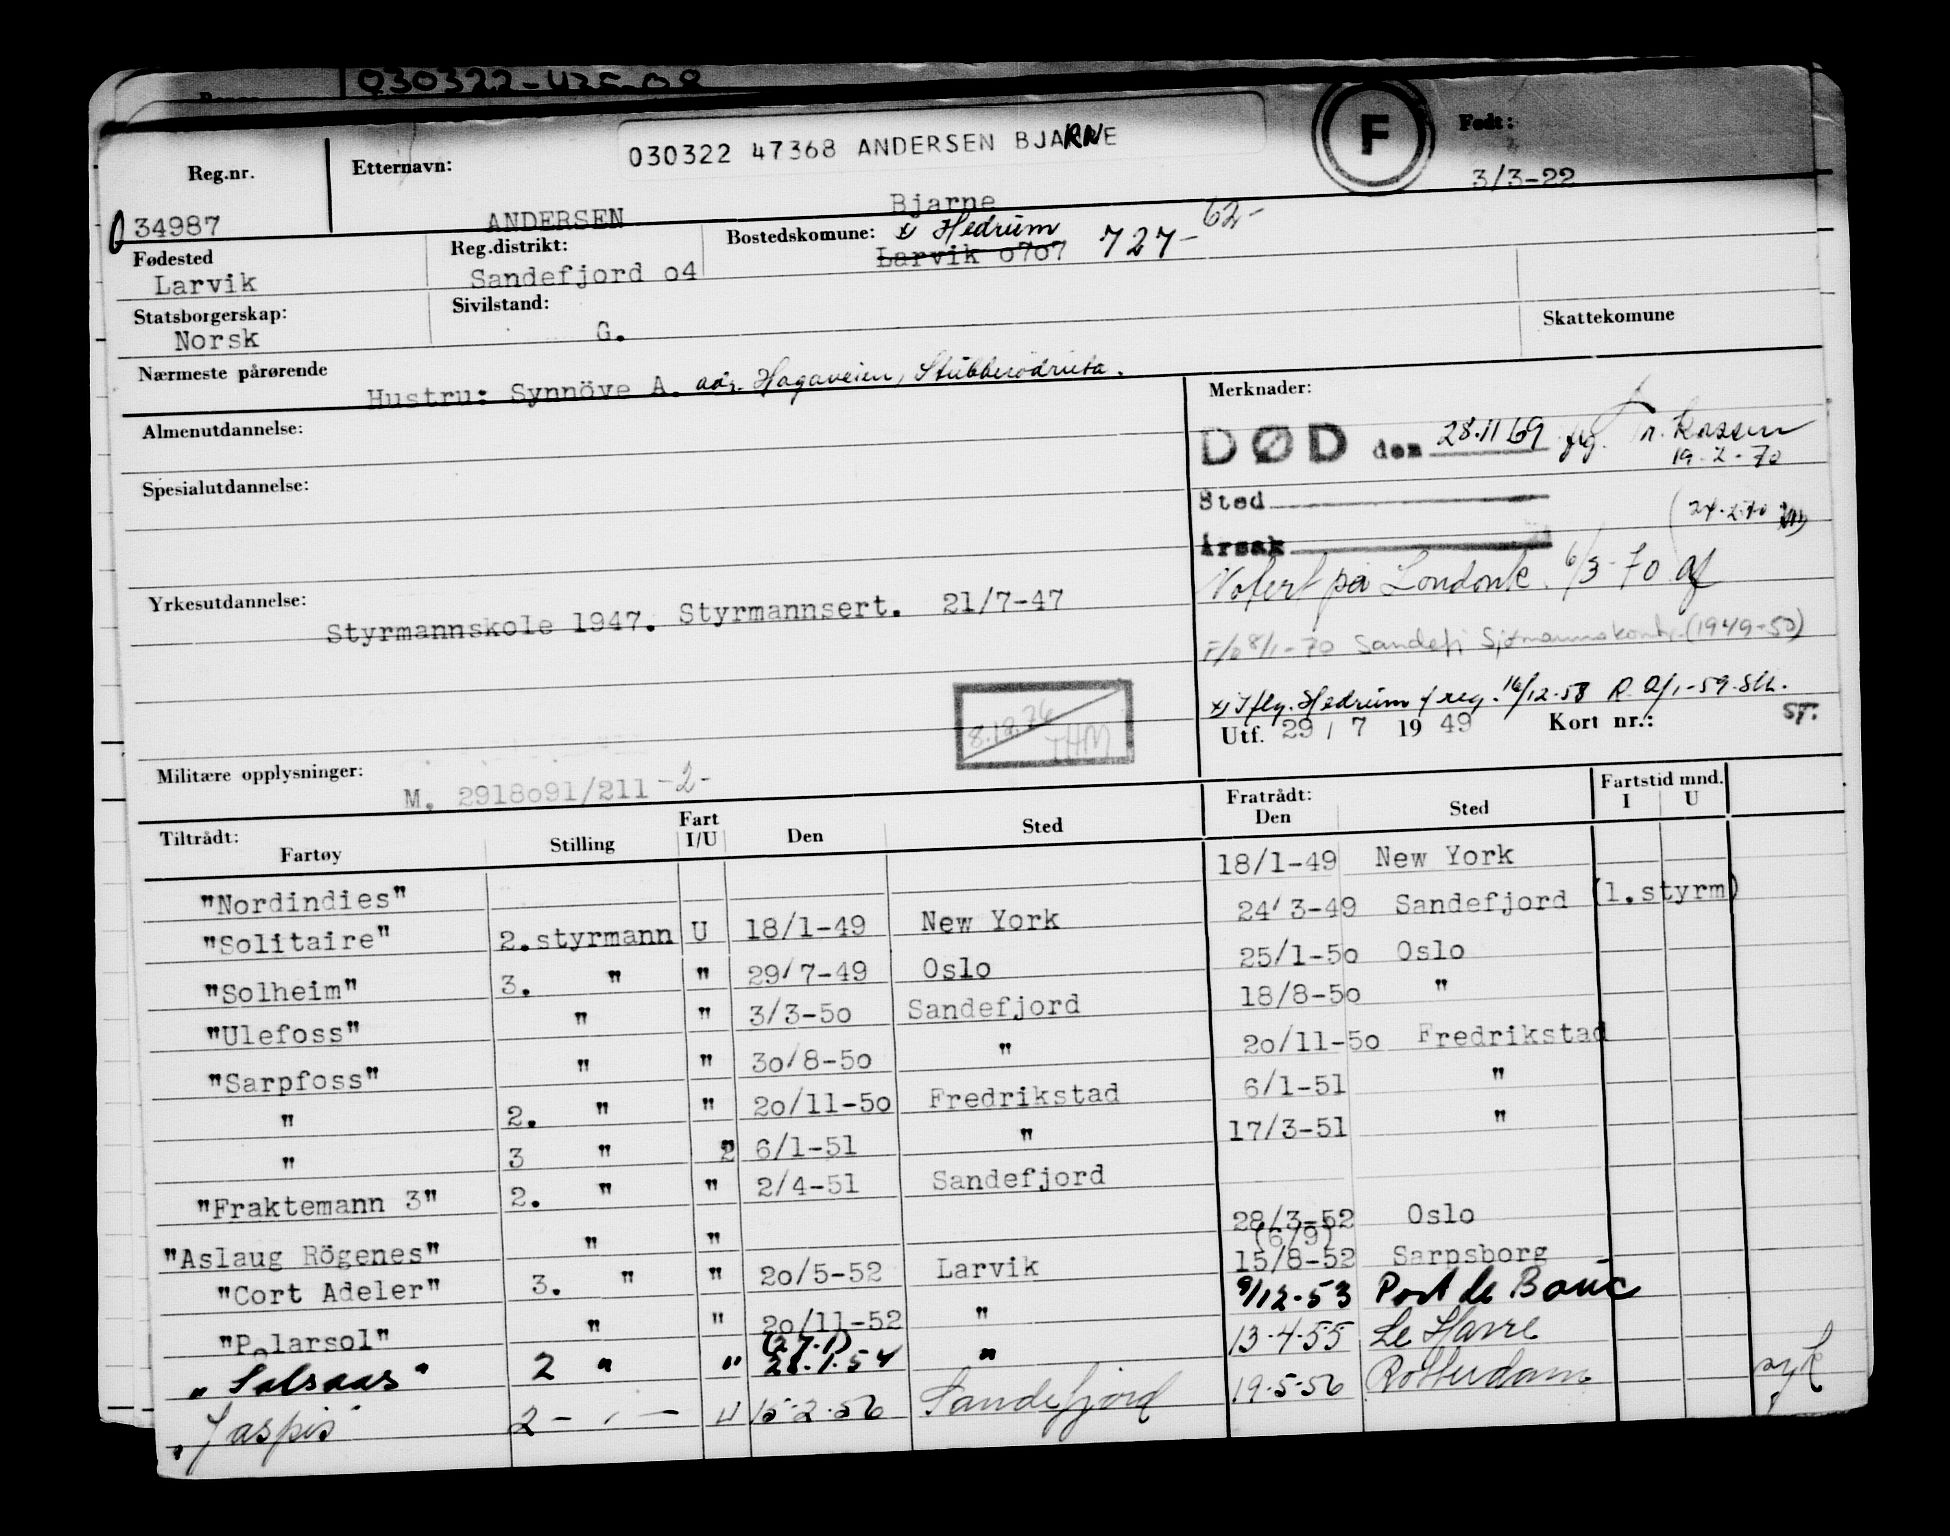 030322 47368 ANDERSEN BJARNE
F
Reg.nr. Etternavn: Født:
34987 ANDERSEN Bjarne 3/3-22
Fødested Reg.distrikt: Bostedskomune: x Hedrum
Larvik Sandefjord o4 Larvik o7o7 727- 62-
Statsborgerskap: Sivilstand: Skattekomune
Norsk G.
Nærmeste pårørende
Hustru: Synnöve A. adr. Hagaveien, Stubberödruta.
Almenutdannelse: Merknader:
DØD den 28.11 69
19-2-70
Spesialutdannelse:
Sted
24.2.70
Årsak
Yrkesutdannelse: Notert på Londonk. 6/3-70
Styrmannskole 1947. Styrmannsert. 21/7-47
8/1-70 Sandefj Sjömannskontr. (1949-50)
x) Iflg. Hedrum f reg. 16/12-58 R. 2/1-59. Slk.
8.12.76 THM
Utf. 29 / 7 19 49 Kort nr.: ST.
Militære opplysninger:
M. 2918o91/211 -2-
Tiltrådt: Fratrådt: Fartstid mnd.
Fartøy Stilling Fart I/U Den Sted Den Sted I U
"Nordindies" 18/1-49 New York
"Solitaire" 2.styrmann U 18/1-49 New York 24/3-49 Sandefjord (1.styrm)
"Solheim" 3. " " 29/7-49 Oslo 25/1-5o Oslo
"Ulefoss" " " 3/3-5o Sandefjord 18/8-5o "
"Sarpfoss" " " 3o/8-5o " 2o/11-5o Fredrikstad
" 2. " " 2o/11-5o Fredrikstad 6/1-51 "
" 3 " " 6/1-51 " 17/3-51 "
"Fraktemann 3" 2. " " 2/4-51 Sandefjord
"Aslaug Rögenes" " " 28/3-52 Oslo
(6/9)
"Cort Adeler" 3. " " 2o/5-52 Larvik 15/8-52 Sarpsborg
"Polarsol" " " 2o/11-52 " 9/12-53 Port de Bouc
(27.1)
"Solsaas" 2 " " 28.1.54 " 13.4.55 Le Havre
"Jaspis" 2 - " - " 15-2.56 Sandefjord 19.5.56 Rotterdam syk